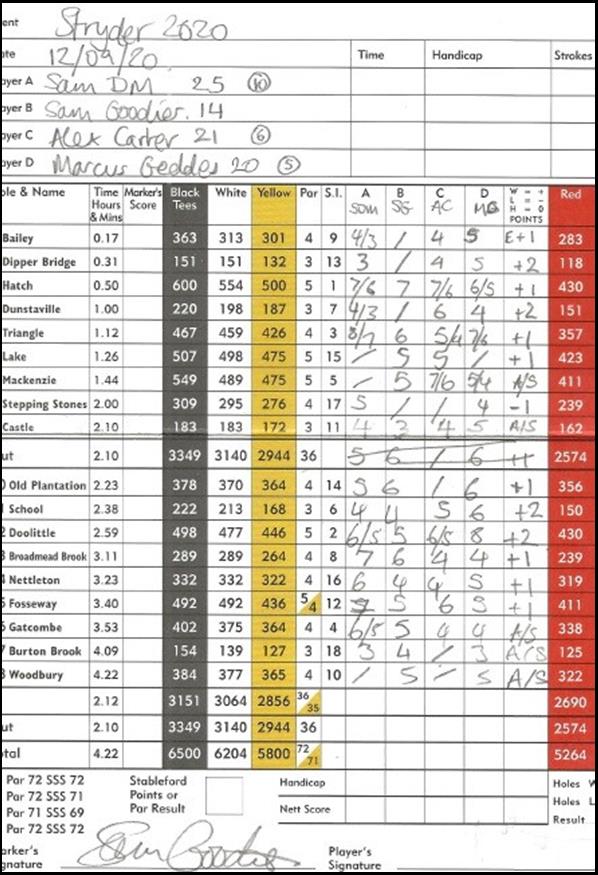 ent Stryder 2020
ate 12/09/20 Time Handicap Strokes
ayer A Sam DM 25 (10)
ayer B Sam Goodier. 14
ayer C Alex Carter 21 (6)
ayer D Marcus Geddes 20 (5)
ole & Name Time Hours & Mins Marker's Score Black Tees White Yellow Par S.I. A SDM B SG C AC D MG W = + L = - H = 0 POINTS Red
Bailey 0.17 363 313 301 4 9 4/3 / 4 5 E+1 283
Dipper Bridge 0.31 151 151 132 3 13 3 / 4 5 +2 118
Hatch 0.50 600 554 500 5 1 7/6 7 7/6 6/5 +1 430
Dunstaville 1.00 220 198 187 3 7 4/3 / 6 4 +2 151
Triangle 1.12 467 459 426 4 3 8/7 6 5/4 7/6 +1 357
Lake 1.26 507 498 475 5 15 / 5 5 / +1 423
Mackenzie 1.44 549 489 475 5 5 / 5 7/6 5/4 A/S 411
Stepping Stones 2.00 309 295 276 4 17 5 / / 4 -1 239
Castle 2.10 183 183 172 3 11 4 3 4 5 A/S 162
ut 2.10 3349 3140 2944 36 5 6 / 6 2574
0 Old Plantation 2.23 378 370 364 4 14 5 6 / 6 +1 356
1 School 2.38 222 213 168 3 6 4 4 5 6 +2 150
2 Doolittle 2.59 498 477 446 5 2 6/5 5 6/5 8 +2 430
3 Broadmead Brook 3.11 289 289 264 4 8 7 6 4 4 +1 239
4 Nettleton 3.23 332 332 322 4 16 6 4 4 5 +1 319
5 Fosseway 3.40 492 492 436 5 4 12 5 6 5 +1 411
6 Gatcombe 3.53 402 375 364 4 4 6/5 5 4 4 A/S 338
7 Burton Brook 4.09 154 139 127 3 18 3 4 / 3 A/S 125
8 Woodbury 4.22 384 377 365 4 10 / 5 / 5 A/S 322
2.12 3151 3064 2856 36 35 2690
ut 2.10 3349 3140 2944 36 2574
otal 4.22 6500 6204 5800 72 71 5264
Par 72 SSS 72
Par 72 SSS 71
Par 71 SSS 69
Par 72 SSS 72
Stableford Points or Par Result
Handicap
Nett Score
Holes W
Holes L
Result
arker's gnature Sam Goodier Player's Signature